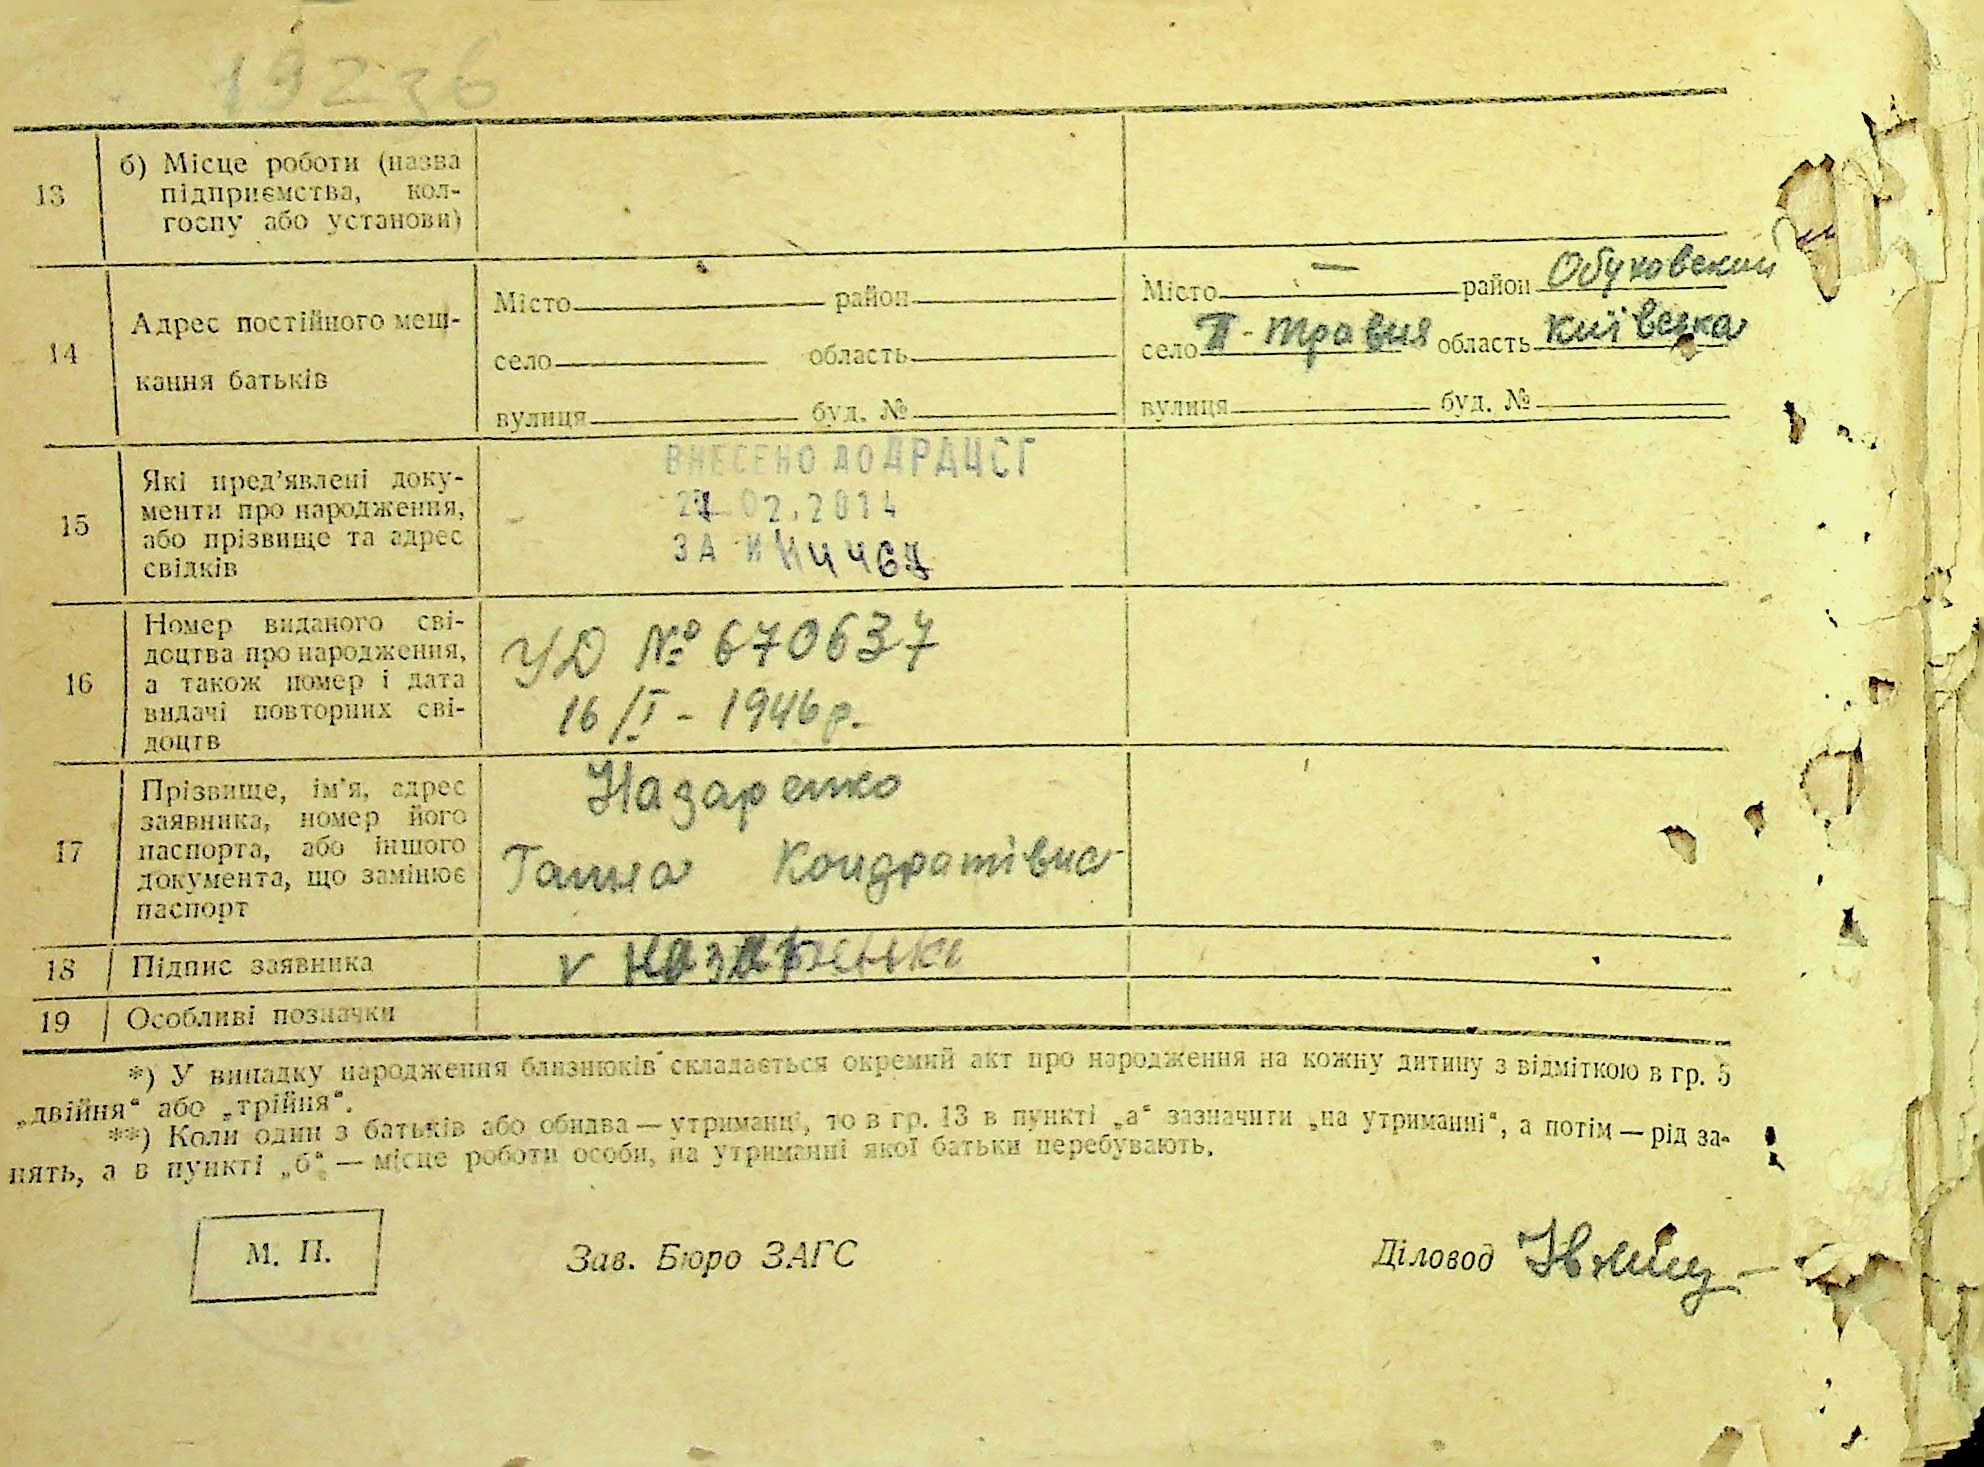 19226
13
б) Місце роботи (назва
підприємства, кол-
госпу або установи)
14
Адрес постійного меш-
кання батьків
Місто район
село область
вулиця буд. №
Місто — район Обуховский
село II-Травня область Київська
вулиця буд. №
15
Які пред'явлені доку-
менти про народження,
або прізвище та адрес
свідків
ВНЕСЕНО ДО ДРАЦСГ
02.2014
ЗА
16
Номер виданого сві-
доцтва про народження,
а також номер і дата
видачі повторних сві-
доцтв
УД № 670637
16/I - 1946 р.
17
Прізвище, ім'я, адрес
заявника, номер його
паспорта, або іншого
документа, що замінює
паспорт
Назаренко
Ганна Кондратівна
18
Підпис заявника
v Назаренко
19
Особливі позначки
*) У випадку народження близнюків складається окремий акт про народження на кожну дитину з відміткою в гр. 5
„двійня“ або „трійня“.
**) Коли один з батьків або обидва — утриманці, то в гр. 13 в пункті „а“ зазначити „на утриманні“, а потім — рід за-
нять, а в пункті „б“ — місце роботи особи, на утриманні якої батьки перебувають.
М. П.
Зав. Бюро ЗАГС
Діловод